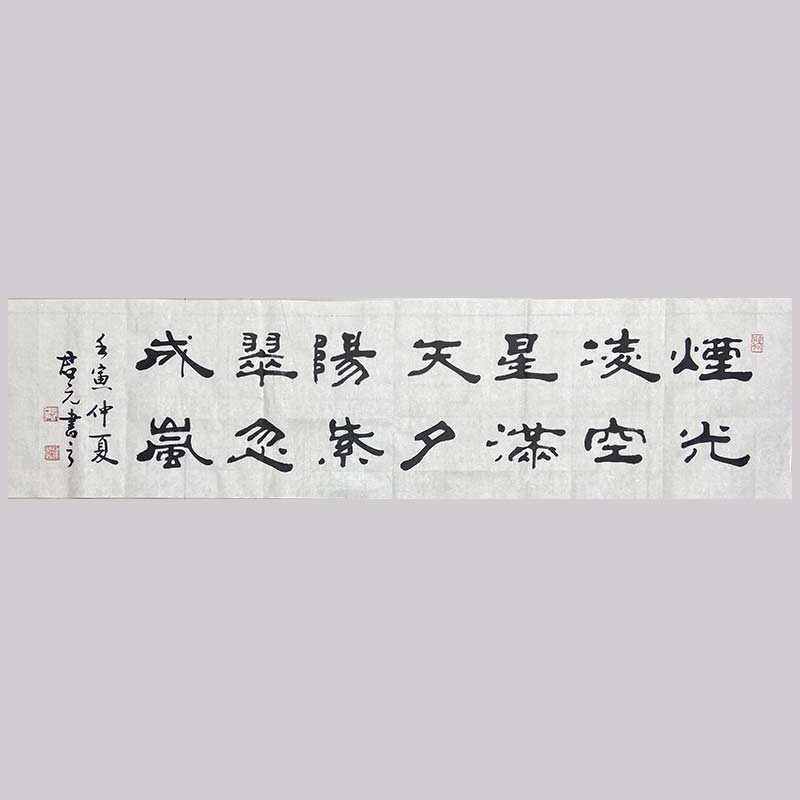 煙光
凌空
星滿
天夕
陽紫
翠忽
成嵐
壬寅仲夏
元書之